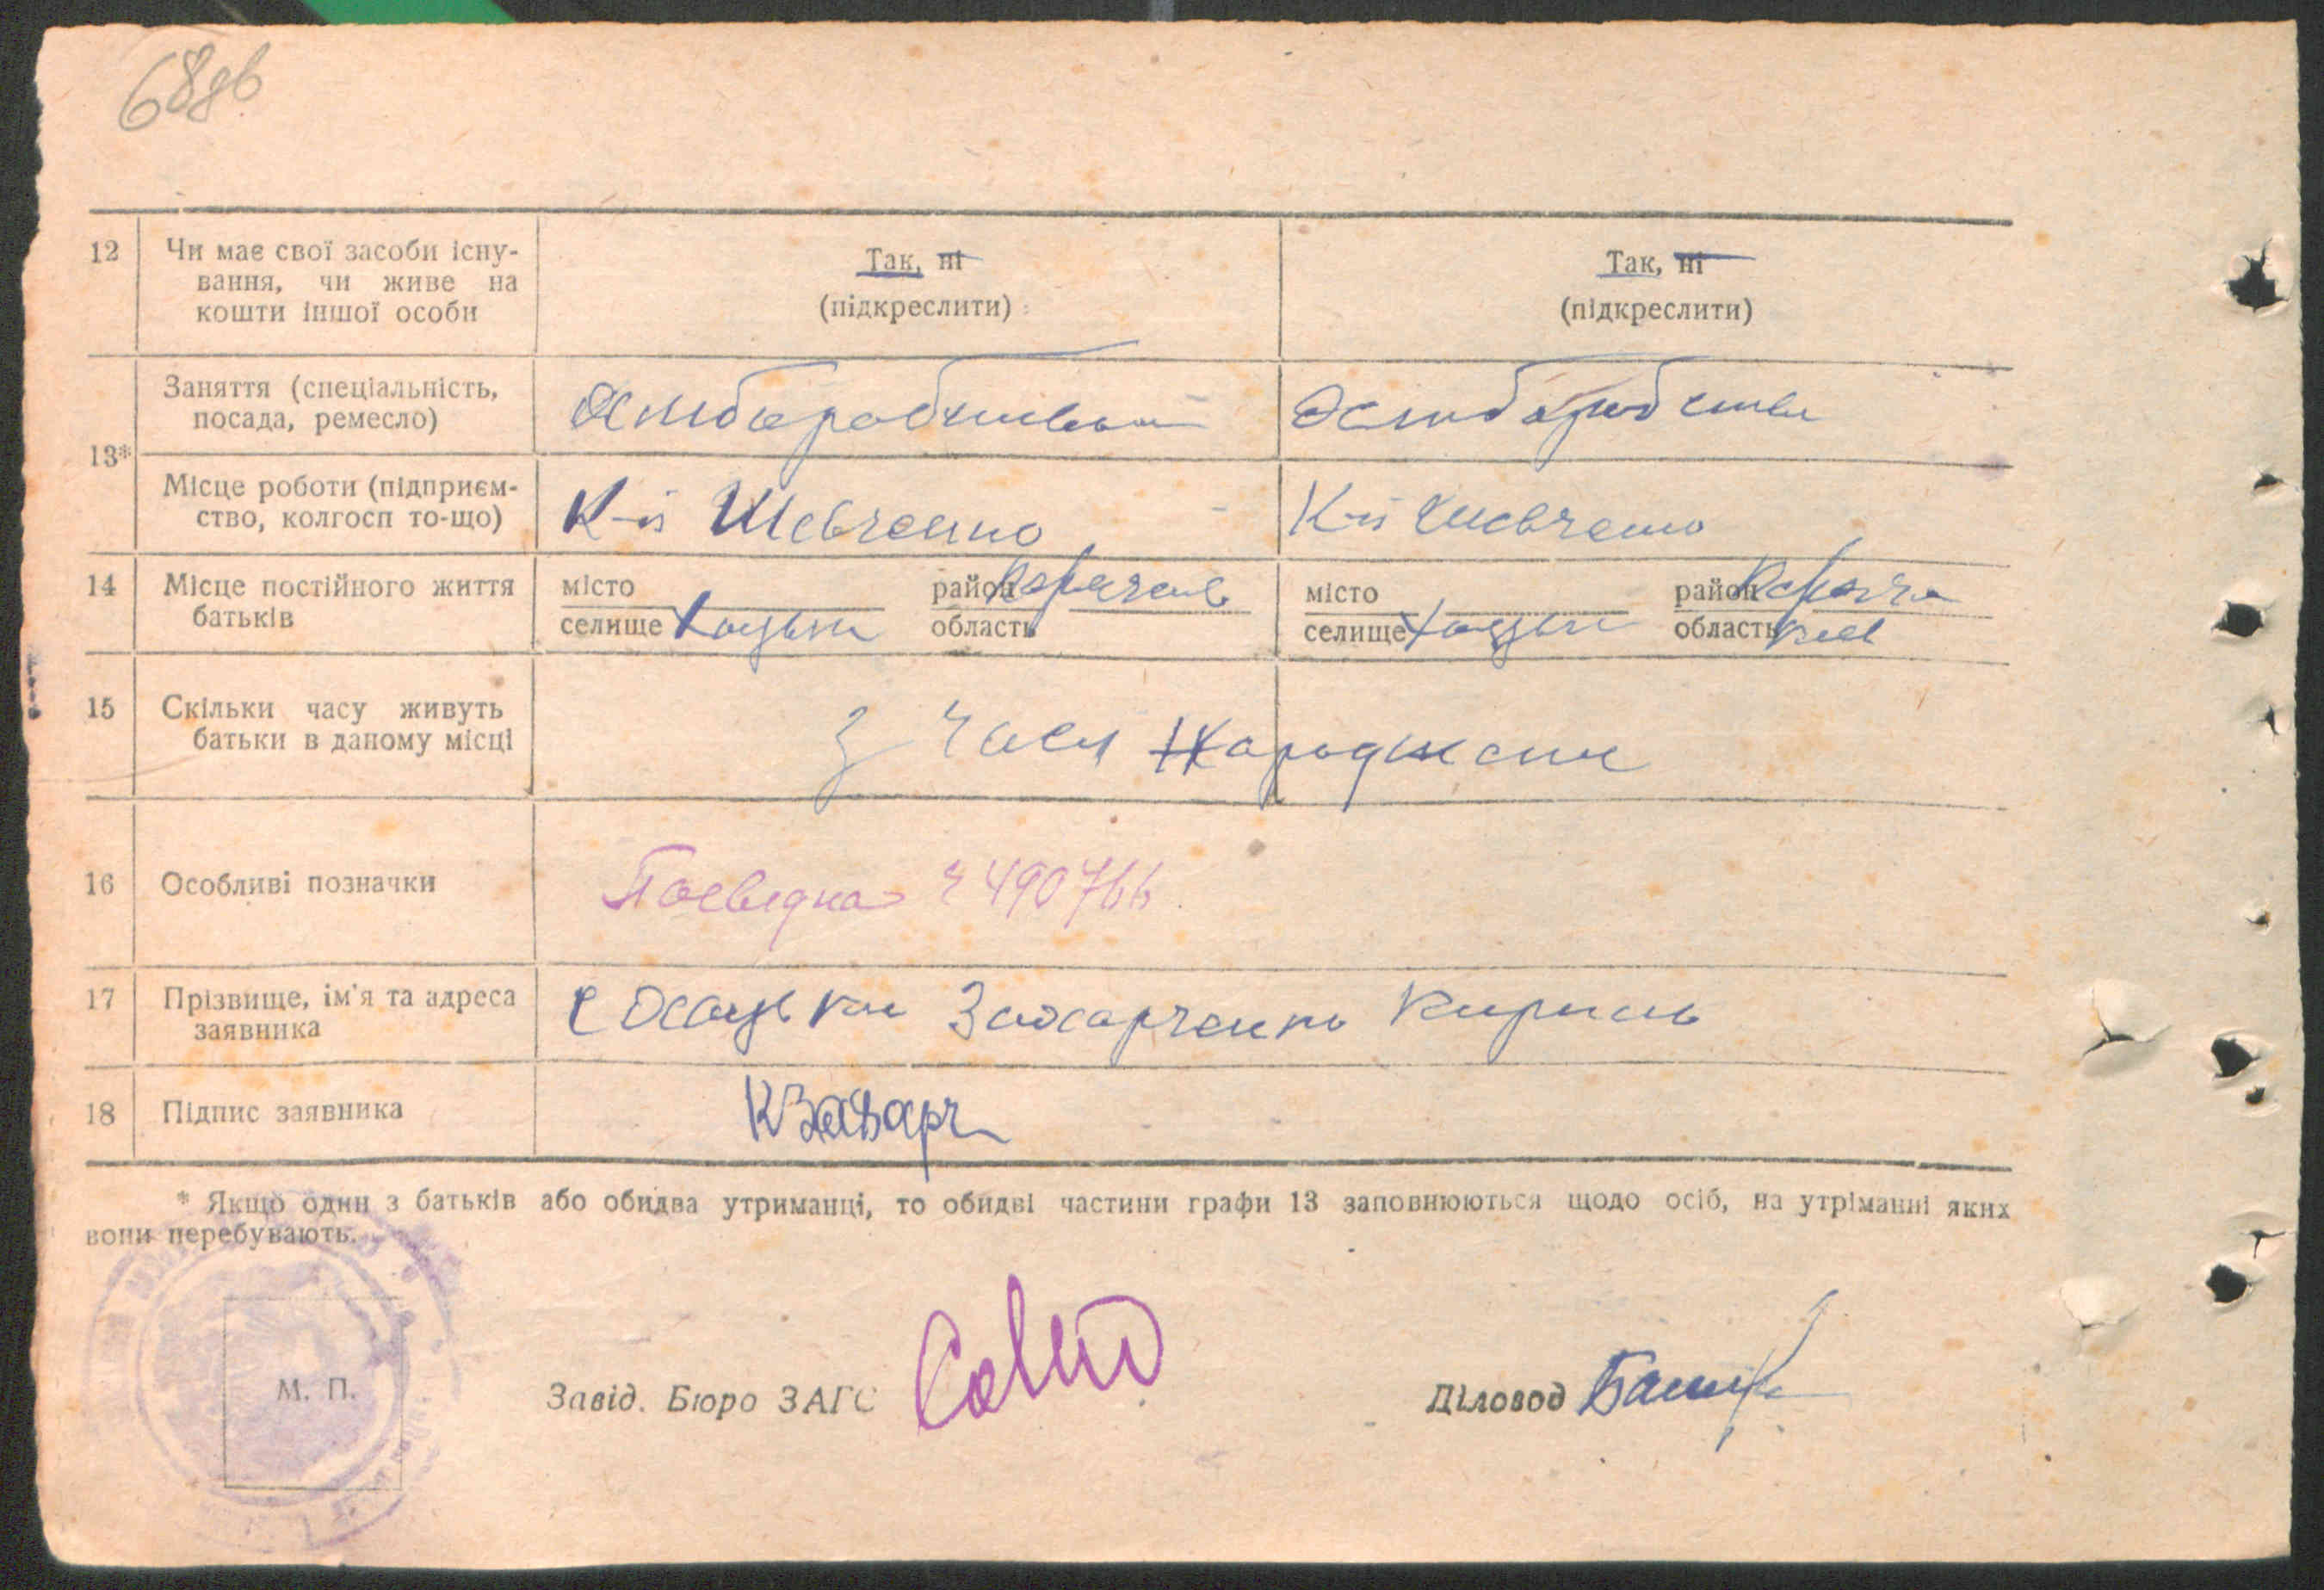 68зв
12 Чи має свої засоби існу-
вання, чи живе на
кошти іншої особи
Так, ні
(підкреслити)
Так, ні
(підкреслити)
13*
Заняття (спеціальність,
посада, ремесло)
Хліборобство
Хліборобство
Місце роботи (підприєм-
ство, колгосп то-що)
К-п Шевченко
К-п Шевченко
14 Місце постійного життя
батьків
місто район
селище Хоцьки область
місто район
селище Хоцьки область
15 Скільки часу живуть
батьки в даному місці
З часу народженн
16 Особливі позначки
Посвідка 490766
17 Прізвище, ім'я та адреса
заявника
с Хоцьки Захарченко Кирило
18 Підпис заявника
КЗахарч
* Якщо один з батьків або обидва утриманці, то обидві частини графи 13 заповнюються щодо осіб, на утріманні яких
вони перебувають.
М. П.
Завід. Бюро ЗАГС
Діловод